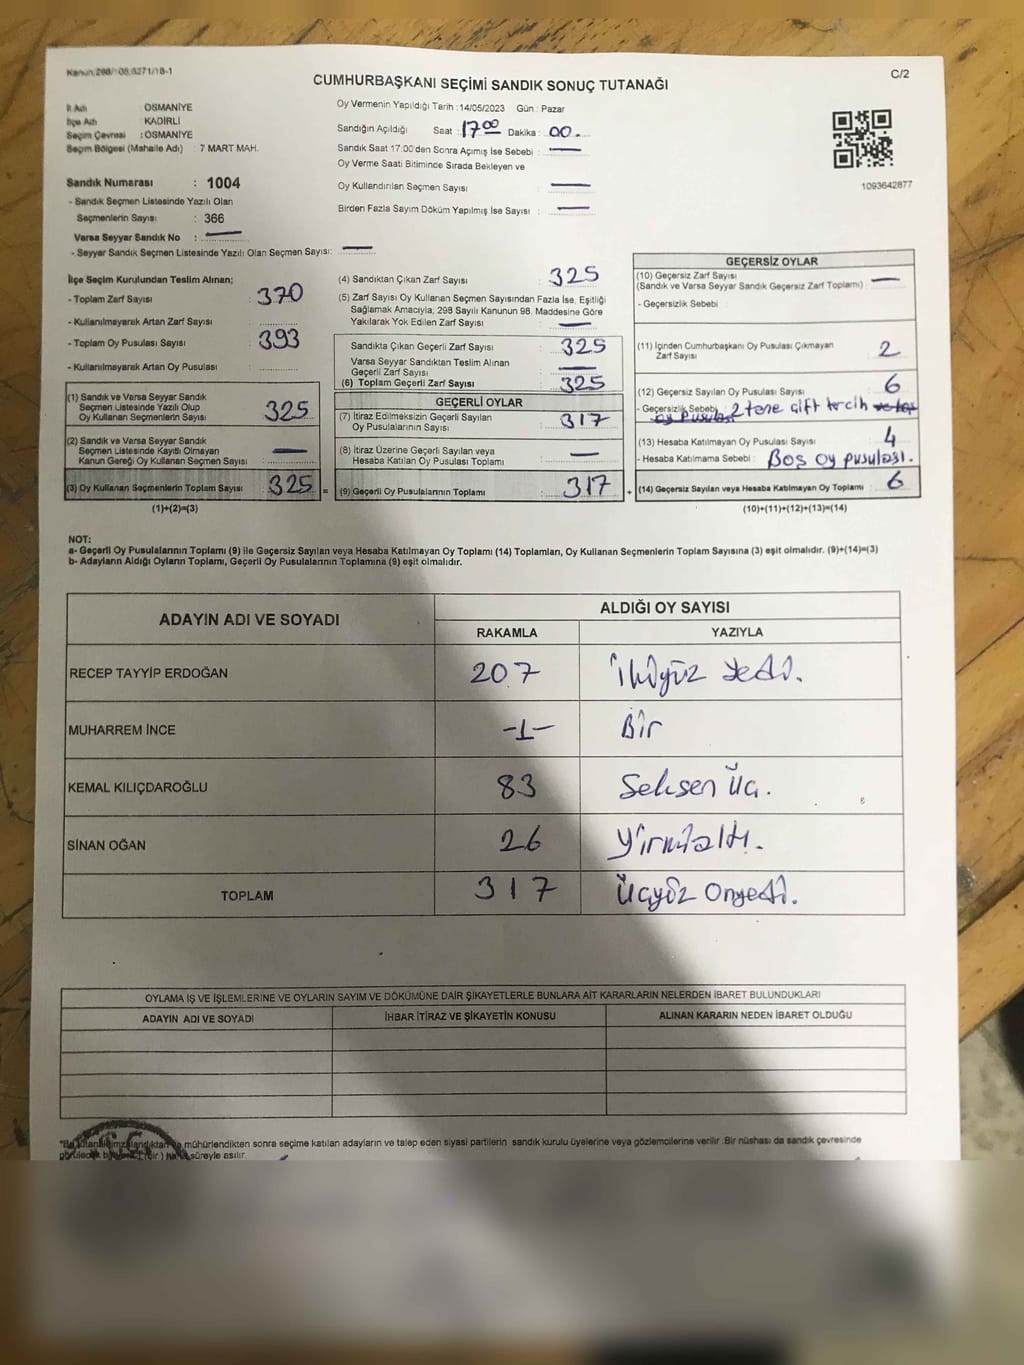 Kanun:298/108,6271/18-1
C/2
CUMHURBAŞKANI SEÇİMİ SANDIK SONUÇ TUTANAĞI
İl Adı : OSMANİYE
İlçe Adı : KADİRLİ
Seçim Çevresi : OSMANİYE
Seçim Bölgesi (Mahalle Adı) : 7 MART MAH.
Sandık Numarası : 1004
- Sandık Seçmen Listesinde Yazılı Olan
Seçmenlerin Sayısı : 366
Varsa Seyyar Sandık No : —
- Seyyar Sandık Seçmen Listesinde Yazılı Olan Seçmen Sayısı: —
Oy Vermenin Yapıldığı Tarih :14/05/2023 Gün : Pazar
Sandığın Açıldığı Saat : 17 00 Dakika : 00.
Sandık Saat 17:00'den Sonra Açımış İse Sebebi : —
Oy Verme Saati Bitiminde Sırada Bekleyen ve
Oy Kullandırılan Seçmen Sayısı : —
Birden Fazla Sayım Döküm Yapılmış İse Sayısı : —
1093642877
İlçe Seçim Kurulundan Teslim Alınan;
- Toplam Zarf Sayısı : 370
- Kullanılmayarak Artan Zarf Sayısı :
- Toplam Oy Pusulası Sayısı : 393
- Kullanılmayarak Artan Oy Pusulası :
(1) Sandık ve Varsa Seyyar Sandık
Seçmen Listesinde Yazılı Olup
Oy Kullanan Seçmenlerin Sayısı : 325
(2) Sandık ve Varsa Seyyar Sandık
Seçmen Listesinde Kayıtlı Olmayan
Kanun Gereği Oy Kullanan Seçmen Sayısı : —
(3) Oy Kullanan Seçmenlerin Toplam Sayısı : 325 =
(1)+(2)=(3)
(4) Sandıktan Çıkan Zarf Sayısı : 325
(5) Zarf Sayısı Oy Kullanan Seçmen Sayısından Fazla İse, Eşitliği
Sağlamak Amacıyla, 298 Sayılı Kanunun 98. Maddesine Göre
Yakılarak Yok Edilen Zarf Sayısı : —
Sandıkta Çıkan Geçerli Zarf Sayısı : 325
Varsa Seyyar Sandıktan Teslim Alınan
Geçerli Zarf Sayısı : —
(6) Toplam Geçerli Zarf Sayısı : 325
GEÇERLİ OYLAR
(7) İtiraz Edilmeksizin Geçerli Sayılan
Oy Pusulalarının Sayısı : 317
(8) İtiraz Üzerine Geçerli Sayılan veya
Hesaba Katılan Oy Pusulası Toplamı : —
(9) Geçerli Oy Pusulalarının Toplamı : 317 +
GEÇERSİZ OYLAR
(10) Geçersiz Zarf Sayısı
(Sandık ve Varsa Seyyar Sandık Geçersiz Zarf Toplamı) : —
- Geçersizlik Sebebi :
(11) İçinden Cumhurbaşkanı Oy Pusulası Çıkmayan
Zarf Sayısı : 2
(12) Geçersiz Sayılan Oy Pusulası Sayısı : 6
- Geçersizlik Sebebi : 2 tane çift tercih
oy pusulası
(13) Hesaba Katılmayan Oy Pusulası Sayısı : 4
- Hesaba Katılmama Sebebi : Boş oy pusulası.
(14) Geçersiz Sayılan veya Hesaba Katılmayan Oy Toplamı : 6
(10)+(11)+(12)+(13)=(14)
NOT:
a- Geçerli Oy Pusulalarının Toplamı (9) ile Geçersiz Sayılan veya Hesaba Katılmayan Oy Toplamı (14) Toplamları, Oy Kullanan Seçmenlerin Toplam Sayısına (3) eşit olmalıdır. (9)+(14)=(3)
b- Adayların Aldığı Oyların Toplamı, Geçerli Oy Pusulalarının Toplamına (9) eşit olmalıdır.
ADAYIN ADI VE SOYADI ALDIĞI OY SAYISI
RAKAMLA YAZIYLA
RECEP TAYYİP ERDOĞAN 207 İkiyüz yedi.
MUHARREM İNCE -1- Bir
KEMAL KILIÇDAROĞLU 83 Seksen üç.
SİNAN OĞAN 26 Yirmialtı.
TOPLAM 317 Üçyüz Onyedi.
OYLAMA İŞ VE İŞLEMLERİNE VE OYLARIN SAYIM VE DÖKÜMÜNE DAİR ŞİKAYETLERLE BUNLARA AİT KARARLARIN NELERDEN İBARET BULUNDUKLARI
ADAYIN ADI VE SOYADI İHBAR İTİRAZ VE ŞİKAYETİN KONUSU ALINAN KARARIN NEDEN İBARET OLDUĞU
mühürlendikten sonra seçime katılan adayların ve talep eden siyasi partilerin sandık kurulu üyelerine veya gözlemcilerine verilir .Bir nüshası da sandık çevresinde
süreyle asılır.